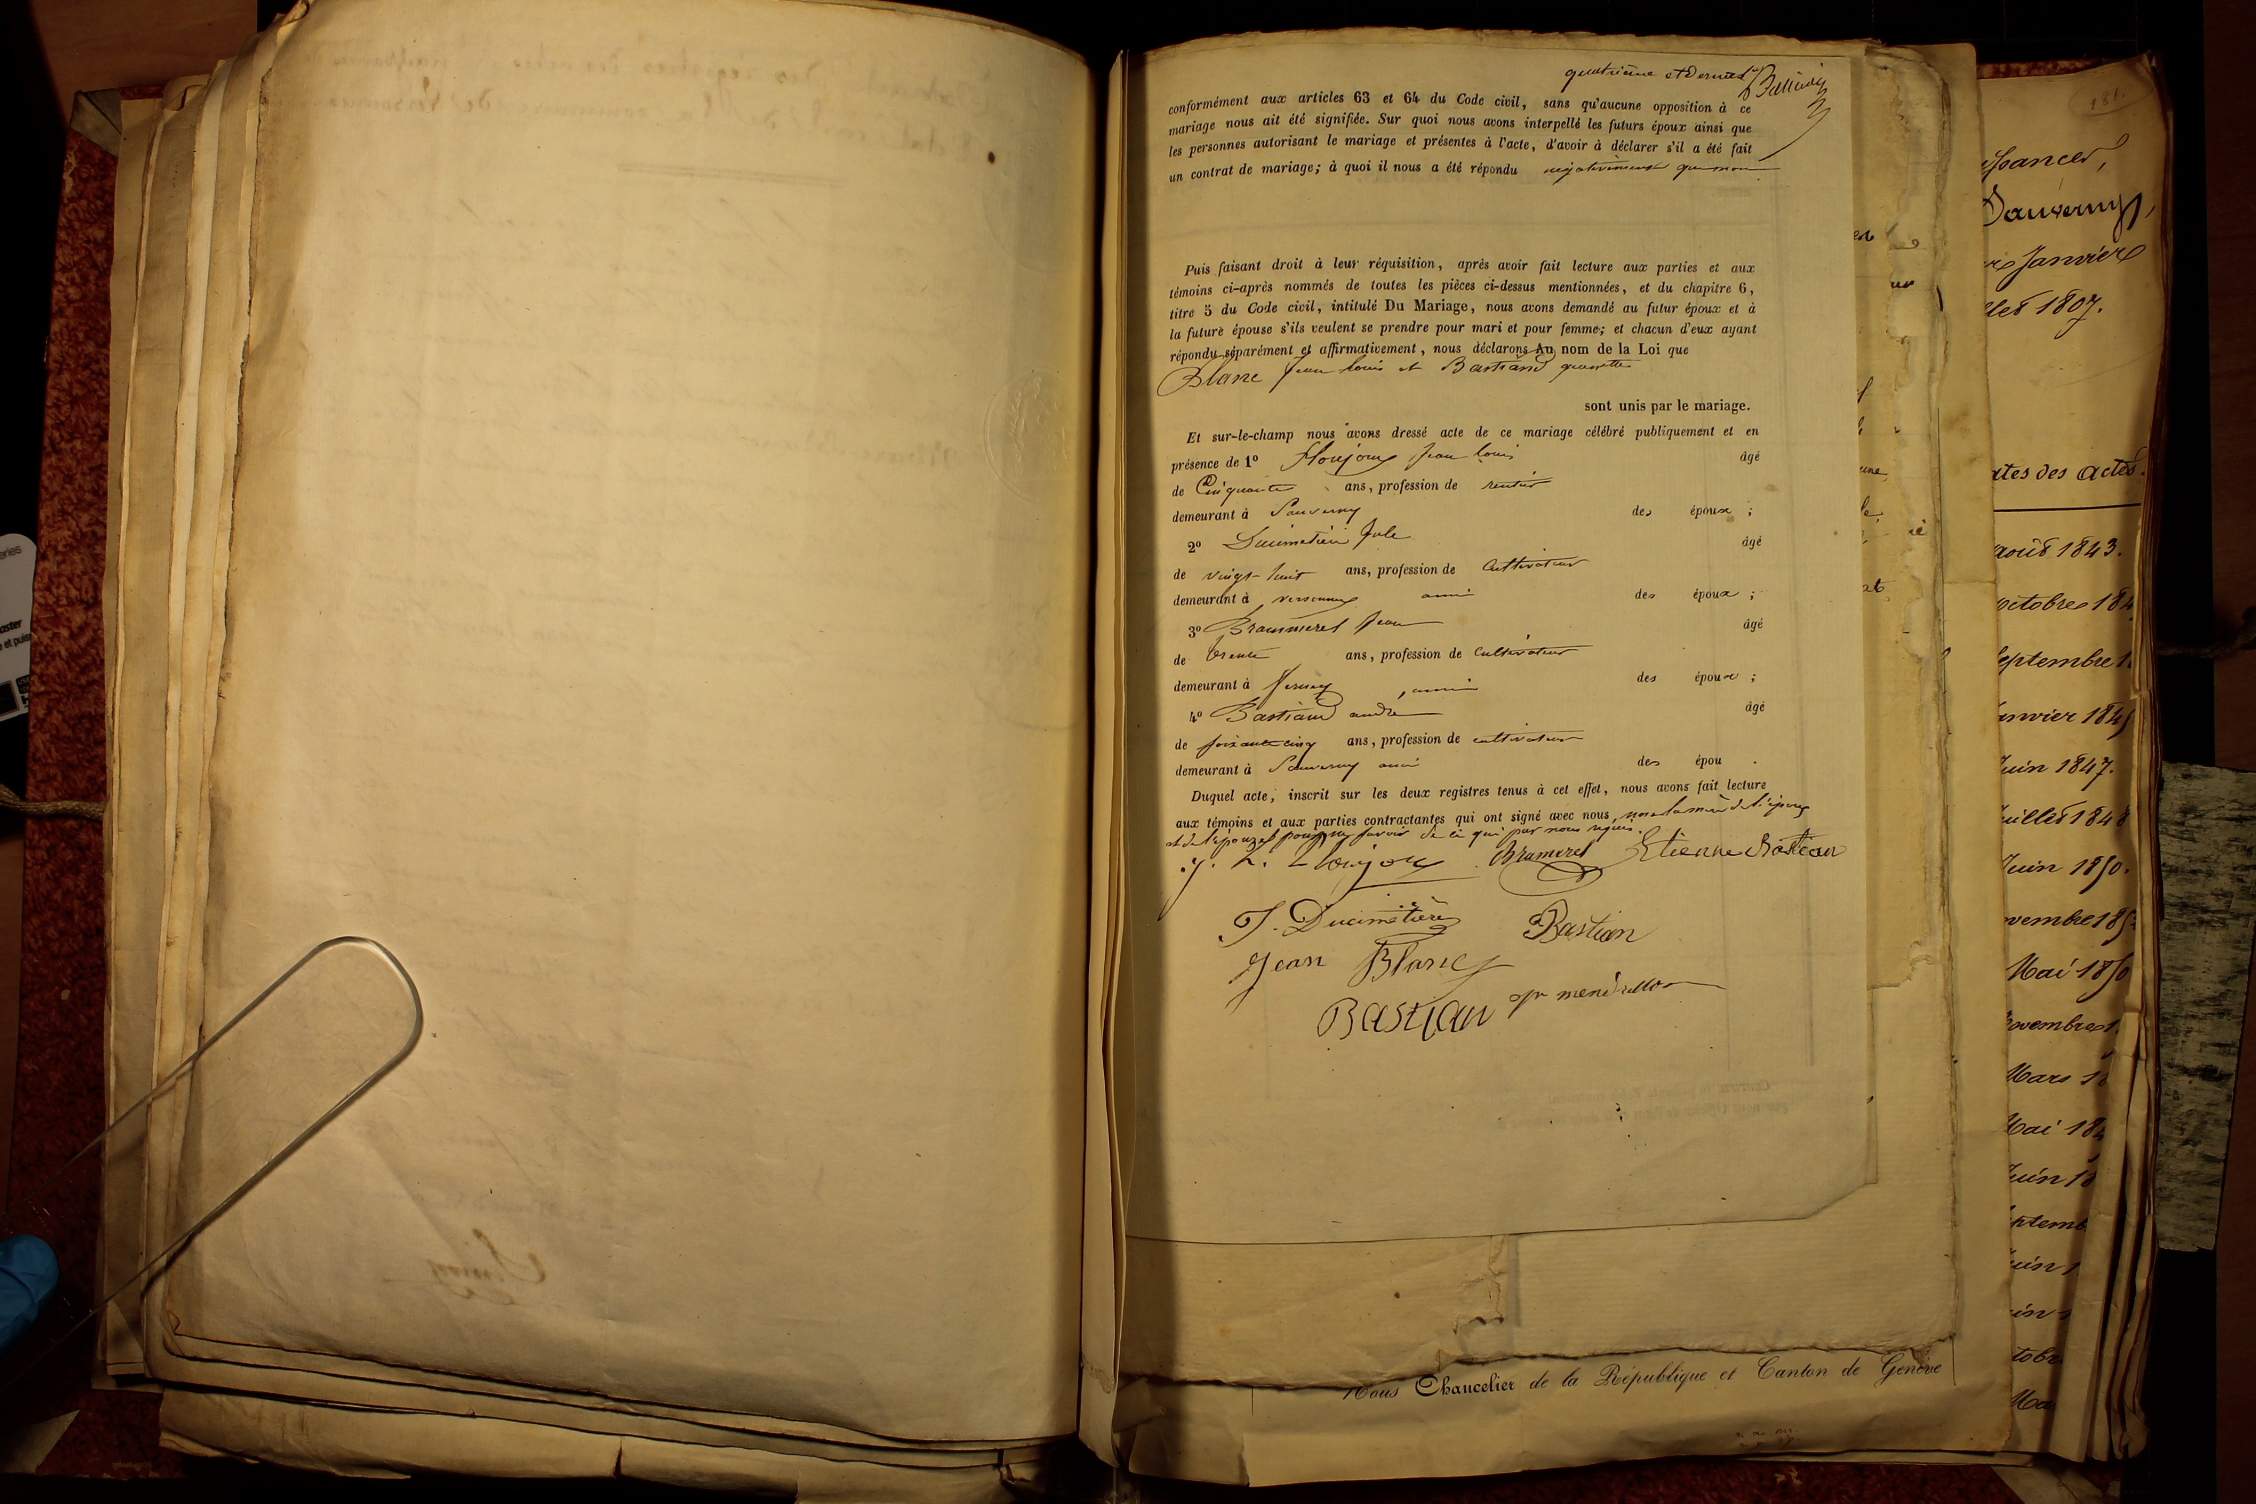 quatrième et dernier
conformément aux articles 63 et 64 du Code civil, sans qu'aucune opposition à ce
mariage nous ait été signifiée. Sur quoi nous avons interpellé les futurs époux ainsi que
les personnes autorisant le mariage et présentes à l'acte, d'avoir à déclarer s'il a été fait
un contrat de mariage; à quoi il nous a été répondu négativement que non
Puis faisant droit à leur réquisition, après avoir fait lecture aux parties et aux
témoins ci-après nommés de toutes les pièces ci-dessus mentionnées, et du chapitre 6,
titre 5 du Code civil, intitulé Du Mariage, nous avons demandé au futur époux et à
la future épouse s'ils veulent se prendre pour mari et pour femme; et chacun d'eux ayant
répondu séparément et affirmativement, nous déclarons Au nom de la Loi que
Blanc Jean louis et Bastiand
sont unis par le mariage.
Et sur-le-champ nous avons dressé acte de ce mariage célébré publiquement et en
présence de 1º Floujoux Jean louis âgé
de Cinquante ans, profession de rentier
demeurant à Sauverny des époux ;
2º Ducimetière Jule âgé
de vingt-huit ans, profession de Cultivateur
demeurant à versonnex ami des époux ;
3º Brammerel Jean âgé
de trente ans, profession de Cultivateur
demeurant à , ami des époux ;
4º Bastiand andré âgé
de soixante cinq ans, profession de cultivateur
demeurant à Sauverny ami des épou .
Duquel acte, inscrit sur les deux registres tenus à cet effet, nous avons fait lecture
aux témoins et aux parties contractantes qui ont signé avec nous, non la mère de l'époux
et de l'épouze pour ne savoir de ce qui par nous requis.
J. L. Floujou Bramerel Etienne Bastian
J. Ducimetière Bastian
Jean Blanc
BAStian
Nous Chancelier de la République et Canton de Genève
181.
Sauverny,
Janvier
1807.
ates des actes.
août 1843.
octobre 184
septembre 1
anvier 184
Juin 1847.
uillet 1848
Juin 1850.
ovembre 185
Mai 1850
ovembre 1
Mars 1
Mai 184
Juin 18
ptemb
uin 1
in
tobr
Ma